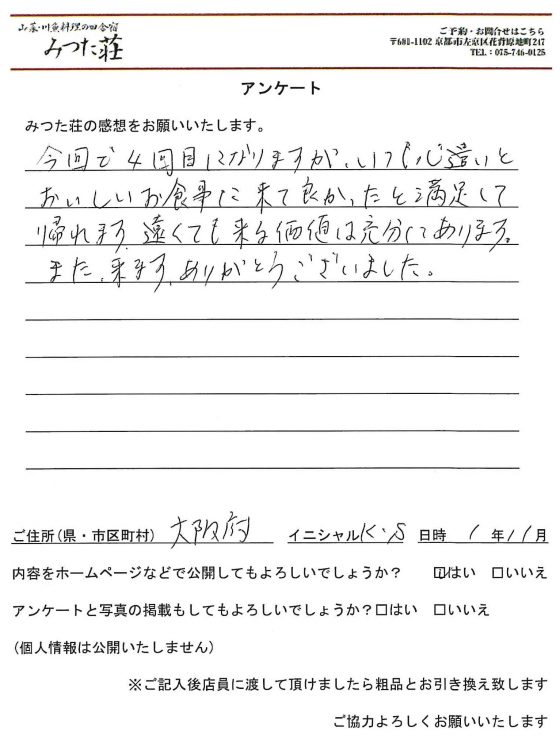 山菜・川魚料理の田舎宿
みつた荘
ご予約・お問合せはこちら
〒601-1102 京都市左京区花背原地町247
TEL：075-746-0125
アンケート
みつた荘の感想をお願いいたします。
今回で4回目になりますが、いつも心遣いと
おいしいお食事に来て良かったと満足して
帰れます。遠くても来る価値は充分にあります。
また、来ます。ありがとうございました。
ご住所(県・市区町村) 大阪府 イニシャル K・S 日時 1年11月
内容をホームページなどで公開してもよろしいでしょうか？ ☑はい □いいえ
アンケートと写真の掲載もしてもよろしいでしょうか？□はい □いいえ
(個人情報は公開いたしません)
※ご記入後店員に渡して頂けましたら粗品とお引き換え致します
ご協力よろしくお願いいたします